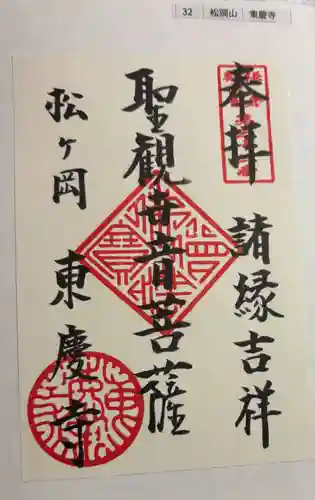 32 松岡山 東慶寺
奉拝
諸縁吉祥
聖観音菩薩
松ヶ岡 東慶寺